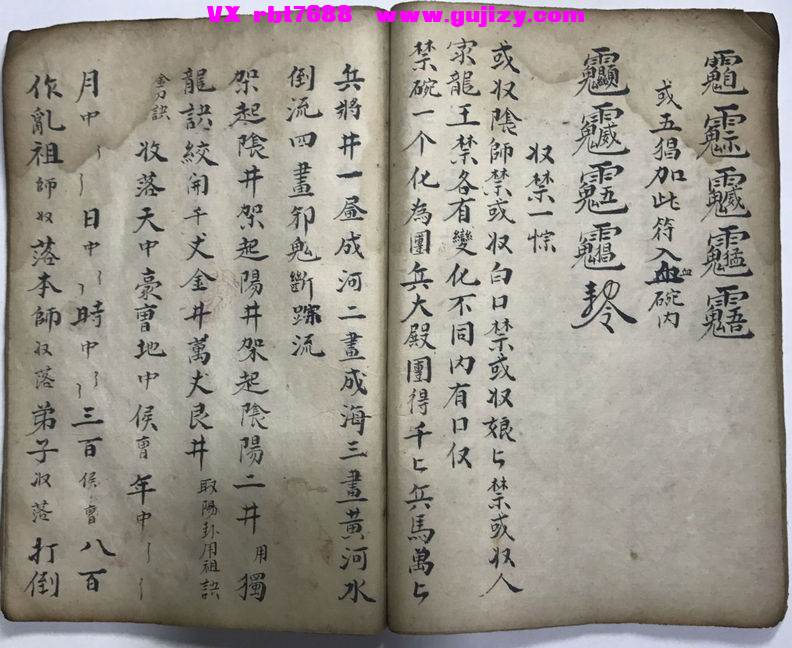 VX rbt7688 www.gujizy.com
或五猖加此符入血碗内
收禁一悰
或奴陰師禁或奴白口禁或奴娘〻禁或奴人
家龍王禁各有變化不同内有口仅
禁碗一个化為團兵大殿團得千〻兵馬萬〻
兵將井一昼成河二畫成海三畫黄河水
倒流四畫邪鬼斷踪流
架起陰井架起陽井架起陰陽二井用獨
龍訣絞開千丈金井萬丈艮井取陽卦用祖訣
金刀訣收落天中豪曺地中侯曺年中〻〻
月中〻〻日中〻〻時中〻〻三百侯曺八百
作亂祖師奴落本師奴落弟子奴落打倒